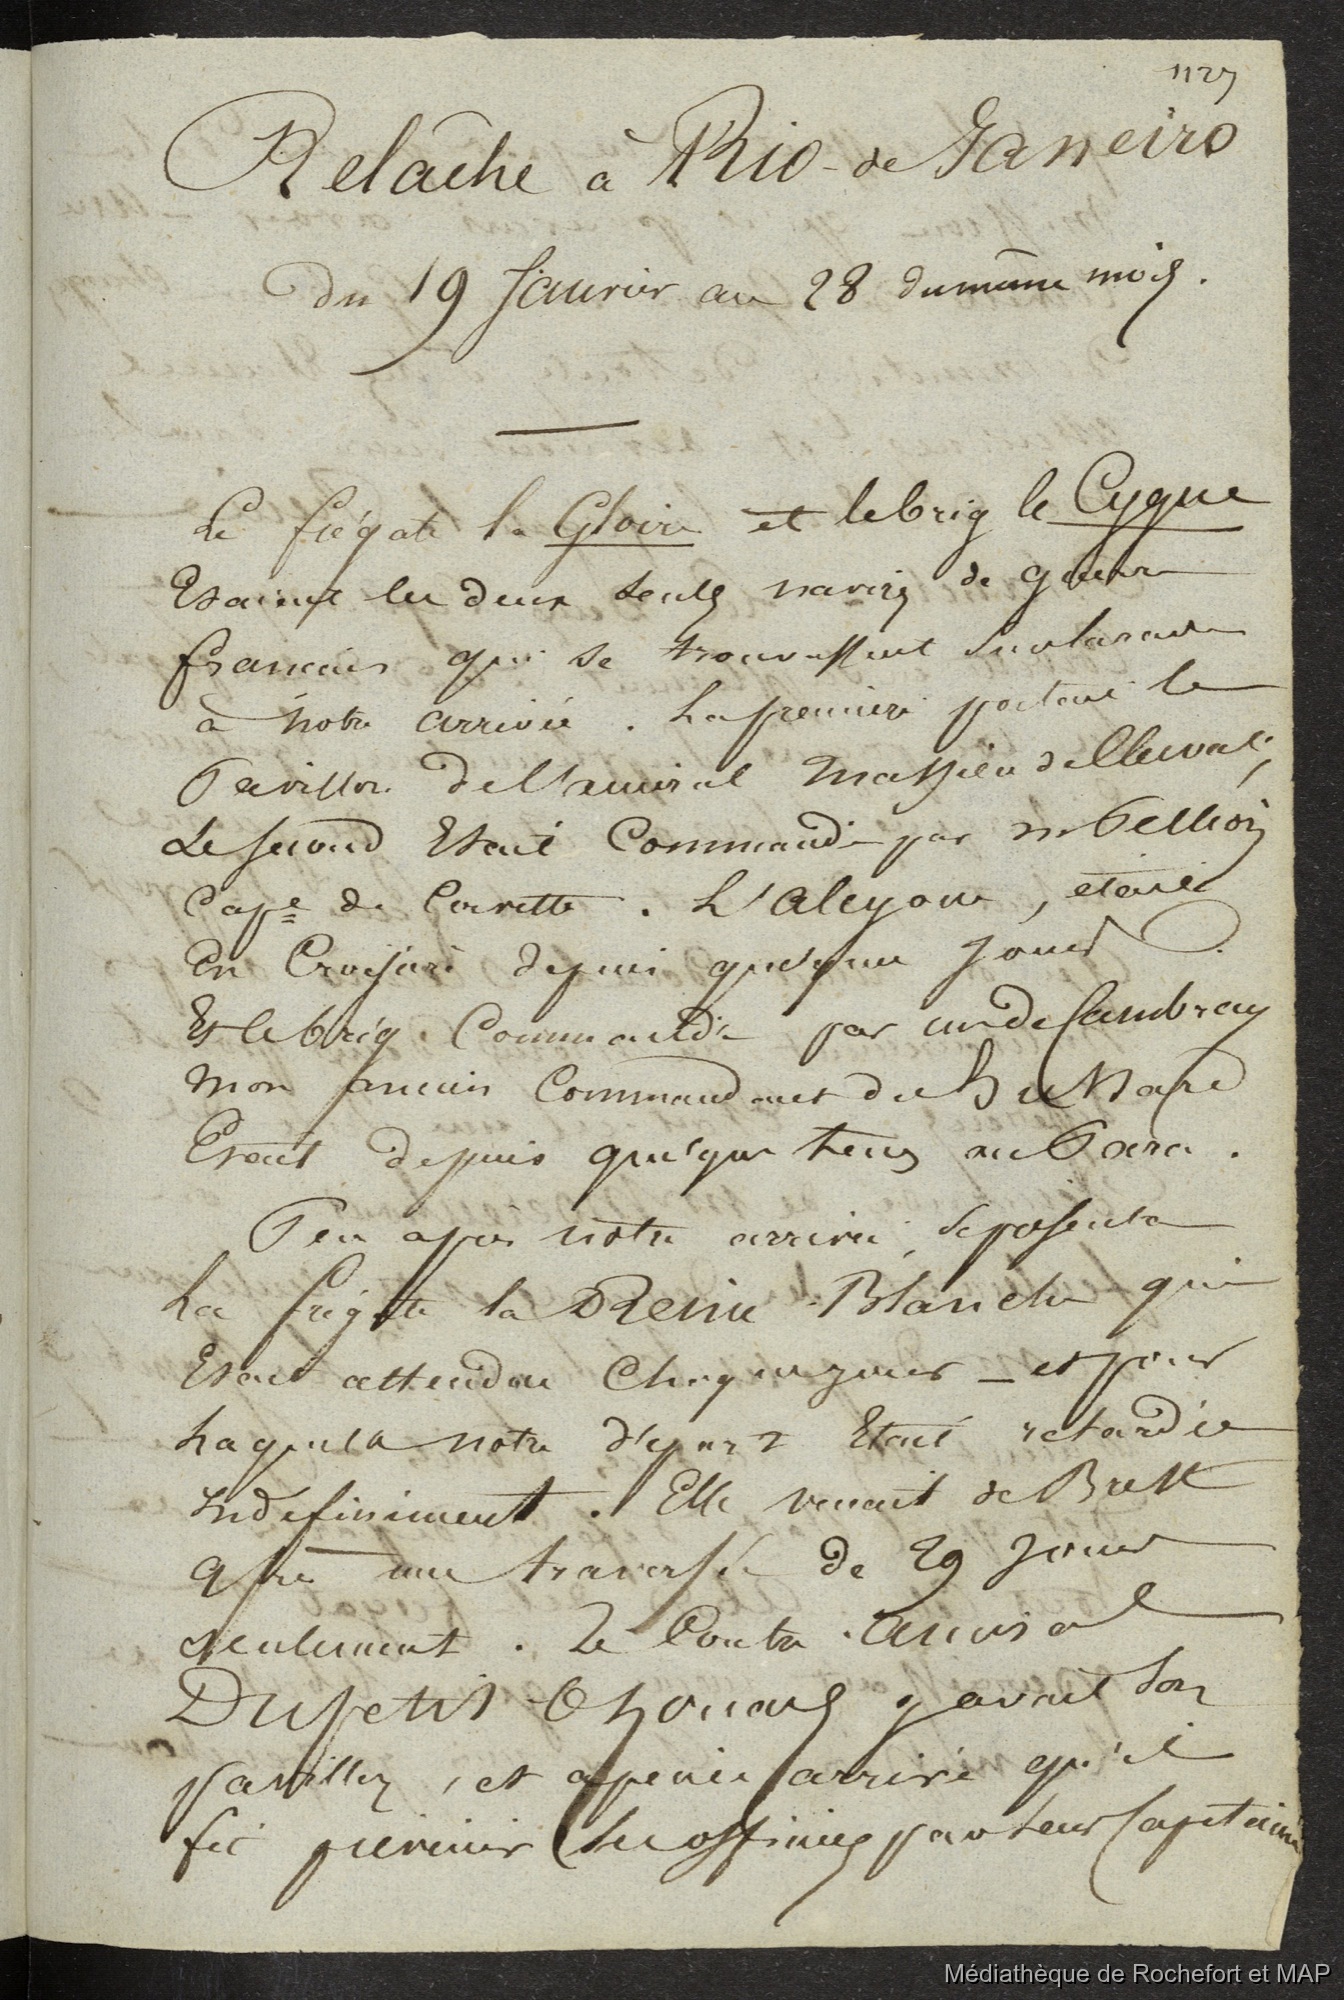 1127
Relâche à Rio-de Janeiro
du 19 Janvier au 28 du même mois.
La frégate la Gloire et le brig le Cygne
Etaient les deux seuls navires de guerre
francais qui se trouvassent sur la rade
à notre arrivée. La première portait le
Pavillon de l'amiral Massieu de Clerval,
Le second Etait Commandé par mr Pellion
Cape de Corvette. L'Alcyone, etait
En Croisière depuis quelques jours
Et le brig Commandé par mr de Cambray
mon ancien Commandant du Hussard
Etait depuis quelque tems au Para.
Peu après notre arrivée, se présenta
La frégate la Reine-Blanche qui
Etait attendue Chaque jour _ et pour
Laquelle notre départ Etait retardée
indefiniment. Elle venait de Brest
après une traversée de 29 jours
seulement. Le Contre-amiral
Dupetit Thouars y avait son
pavillon, et apeine arrivé qu'il
fit prévenir les officiers par leur Capitaine
Médiathèque de Rochefort et MAP